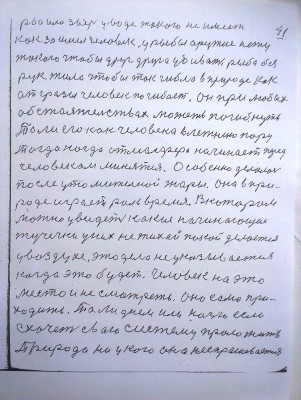 41
рба или зверь у воде такого не имеет
как за имел человек, у рыбы оружие нету
такого чтобы друг друга убивать рыба без
рук жила чтобы так гибло в природе как
от грозы человек погибает. Он при любых
обстоятельствах может погибнуть
То ли его как человека в летнию пору
тогда когда атмасфера начинает пред
человеком минятся. Особенно делают
после утомительной жары. Она в при-
роде играет роль время. В котором
можно увидеть какие начинающие
тучечки у них не тихой покой делается
у воздухе, это дело не указывается
когда это будет. Человек на это
место и не смотреть. Оно само при-
ходить. То ли днем или ночью если
схочет сваю систему проложить
Природа ни у кого она не спрашивается